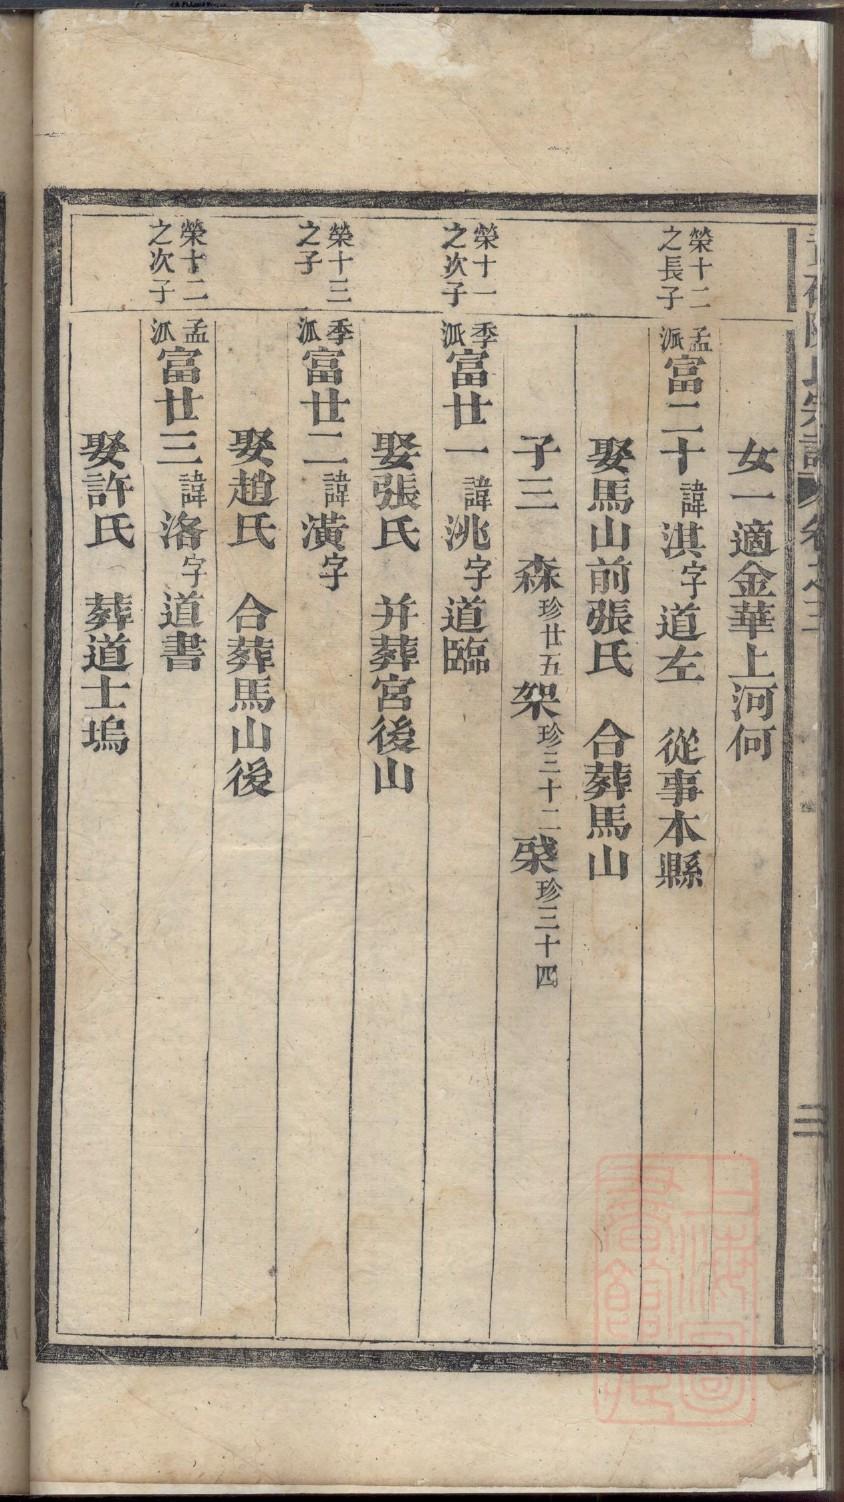 氏宗譜 卷之三
女一適金華上河何
榮十二之長子
孟派富二十諱淇字道左 從事本縣
娶馬山前張氏 合葬馬山
子三 森珍廿五 架珍三十二 棸珍三十四
榮十一之次子
季派富廿一諱洮字道臨
娶張氏 并葬宮後山
榮十三之子
季派富廿二諱潢字
娶趙氏 合葬馬山後
榮十二之次子
孟派富廿三諱洛字道書
娶許氏 葬道士塢
二
上海圖書館藏